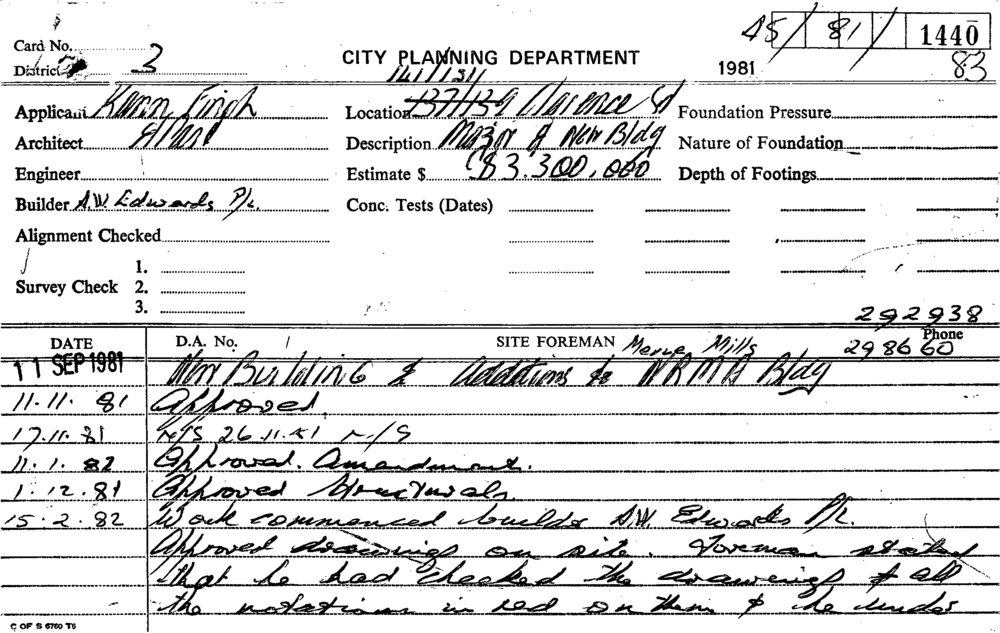 45/81/1440
Card No. 3
District
CITY PLANNING DEPARTMENT
1981
83
141/151
Applicant
Location 137/139 Clarence St
Foundation Pressure
Architect
Description Major & New Bldg
Nature of Foundation
Engineer
Estimate $ $3.300,000
Depth of Footings
Builder A.W. Edwards P/L.
Conc. Tests (Dates)
Alignment Checked
1.
Survey Check 2.
3.
292938
DATE
D.A. No.
SITE FOREMAN Merve Mills
298660
Phone
11 SEP 1981 New Building & Additions to NRMA Bldg
11.11.81 Approved
17.11.81 26.11.81
11.1.82 Approved. Amendment.
1.12.81 Approved Structurals
15.2.82 Work commenced builder A.W. Edwards P/L.
Approved drawings on site. Foreman stated
that he had checked the drawings & all
the notations in red on them & he under
C OF S 6760 T6